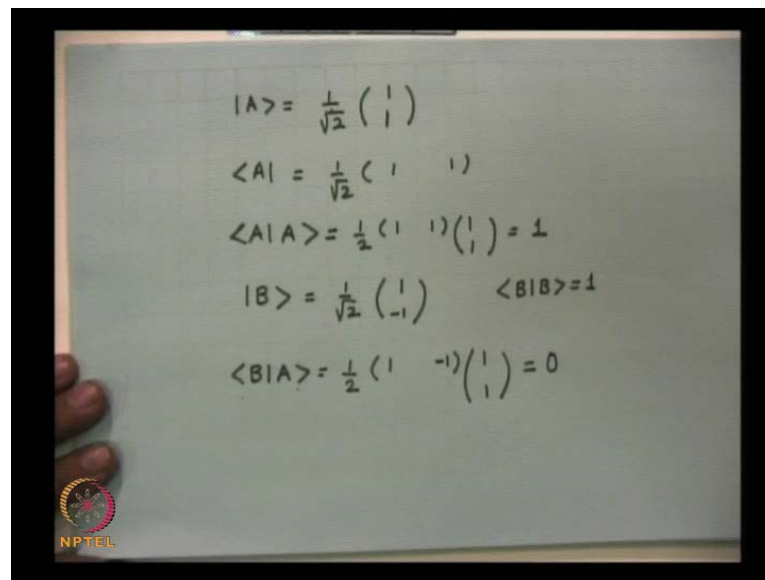 |A> = 1/√2 ( 1 1 )
<A| = 1/√2 ( 1 1 )
<A|A> = 1/2 ( 1 1 ) ( 1 1 ) = 1
|B> = 1/√2 ( 1 -1 ) <B|B> = 1
<B|A> = 1/2 ( 1 -1 ) ( 1 1 ) = 0
NPTEL